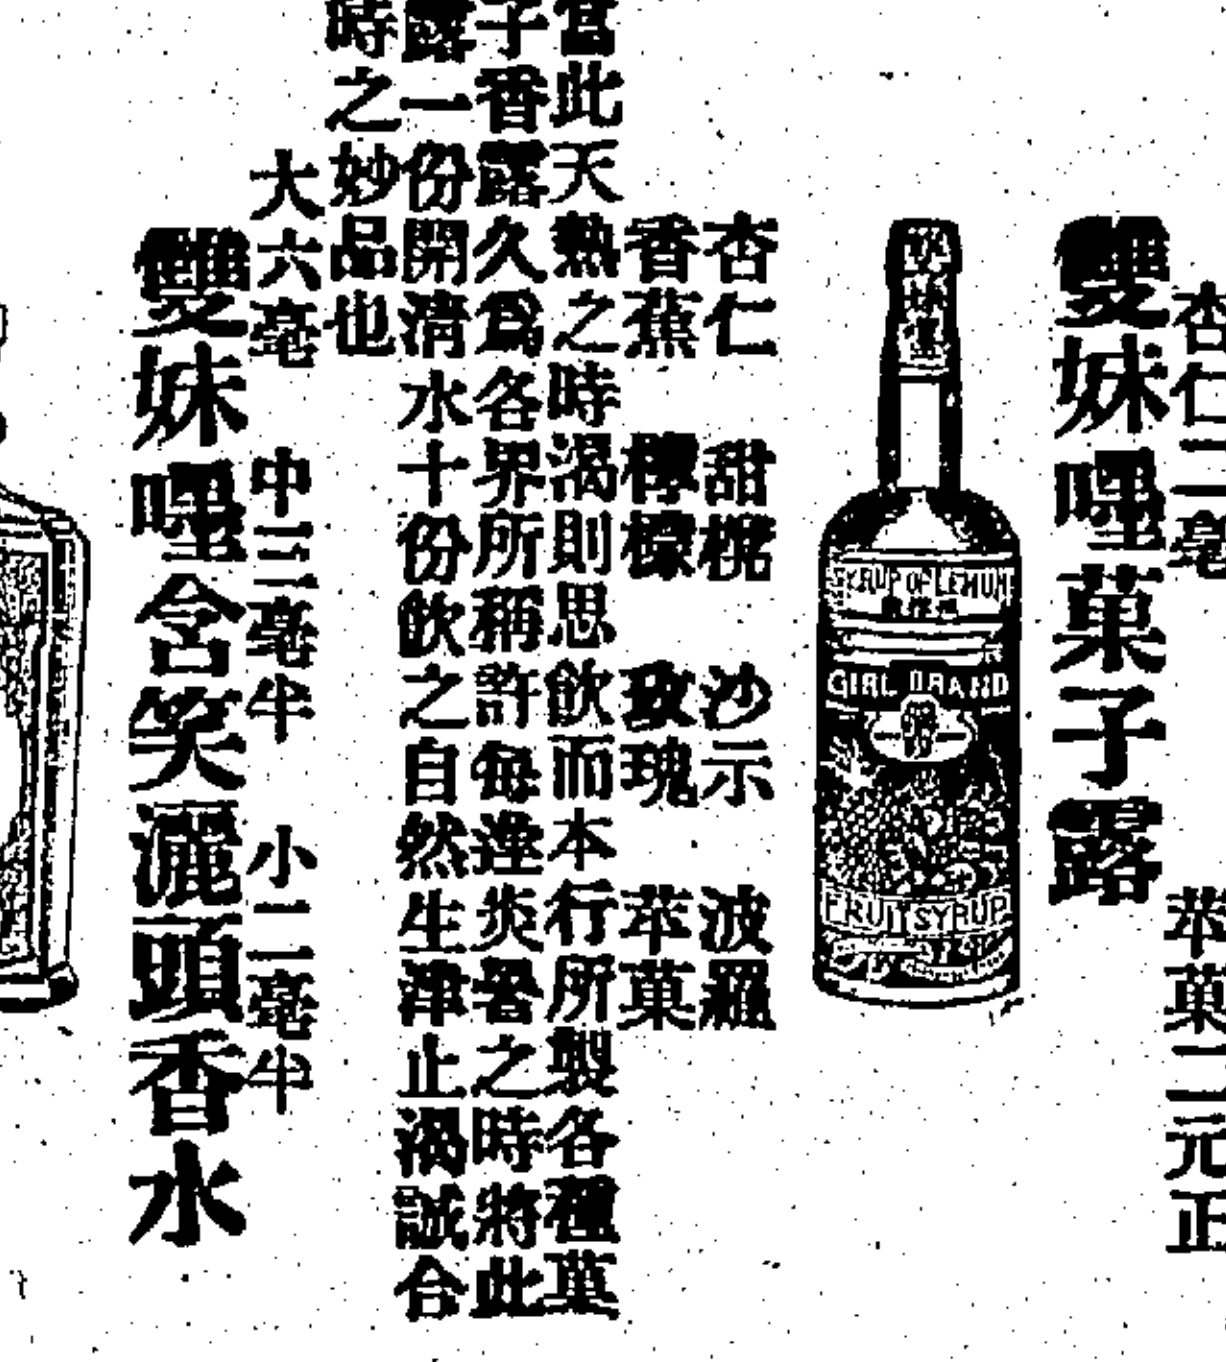 杏仁二毫
苹菓二元正
雙妹嘜菓子露
SYRUP OF LEMON
GIRL BRAND
FRUIT SYRUP
杏仁 甜橙 沙示 波羅
香蕉 檸檬 玫瑰 苹菓
當此天熱之時渴則思飲而本行所製各種菓
子香露久爲各界所稱許每逢炎暑之時將此
露一份開清水十份飲之自然生津止渴誠合
時之妙品也
大六毫 中三毫半 小二毫半
雙妹嘜含笑灑頭香水